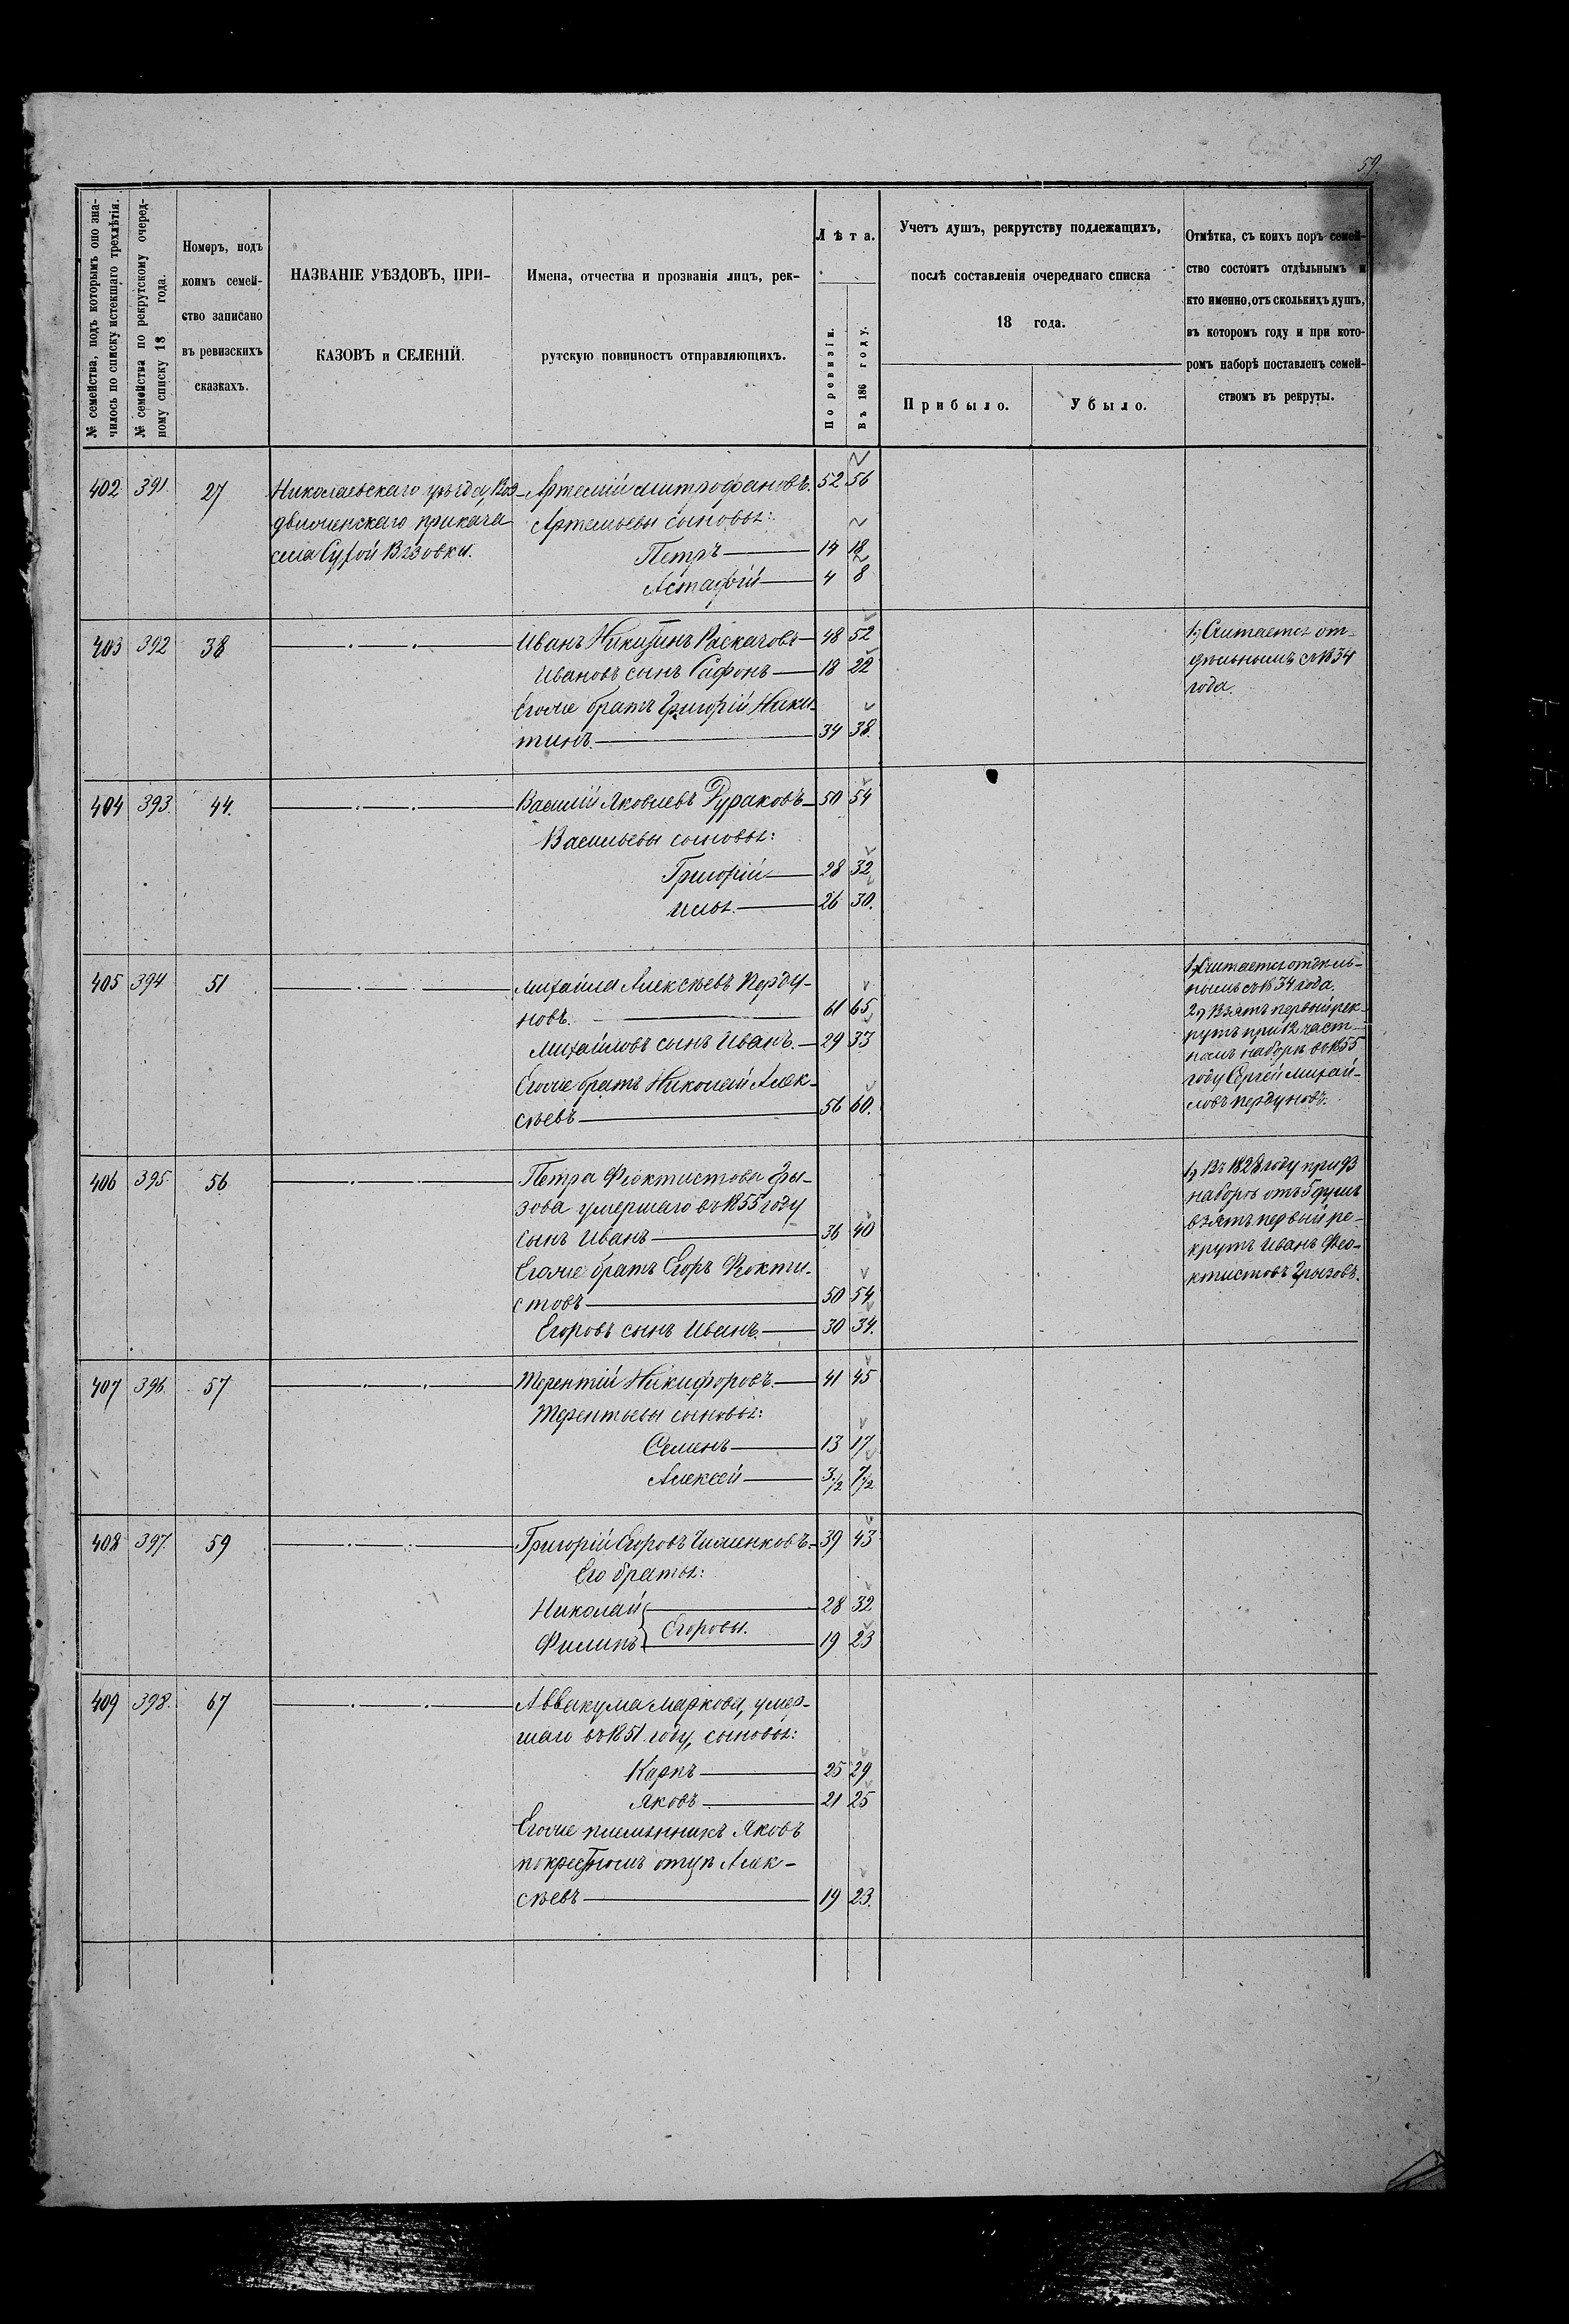 59.
№ семейства, подъ которымъ оно зна-
чилось по списку истекшаго трехлѣтія.
№ семейства по рекрутскому очеред-
ному списку 18 года.
Номеръ, подъ
коимъ семей-
ство записано
въ ревизскихъ
сказкахъ.
НАЗВАНІЕ УѢЗДОВЪ, ПРИ-
КАЗОВЪ и СЕЛЕНІЙ.
Имена, отчества и прозванія лицъ, рек-
рутскую повинность отправляющихъ.
Лѣта.
По ревизіи.
Въ 186 году.
Учетъ душъ, рекрутству подлежащихъ,
послѣ составленія очереднаго списка
18 года.
Прибыло.
Убыло.
Отмѣтка, съ коихъ поръ семей-
ство состоитъ отдѣльнымъ и
кто именно, отъ сколькихъ душъ,
въ которомъ году и при кото-
ромъ наборѣ поставленъ семей-
ствомъ въ рекруты.
402 391. 27 Николаевскаго уѣзда, Воз- Артемій Митрофановъ. 52 56
движенскаго приказа Артемьевы сыновья:
села Сухой Вязовки. Петръ 14 18
Астафій 4 8
403 392 38 Иванъ Никитинъ Раскачовъ 48 52
Ивановъ сынъ Сафонъ 18 22
Егоже братъ Григорій Ники-
тинъ. 34 38.
1, Считается от-
дѣльнымъ съ 1834
года.
404 393. 44. Василій Яковлевъ Дураковъ 50 54
Васильевы сыновья:
Григорій 28 32
Илья. 26 30.
405 394 51 Михайла Алексѣевъ Перду-
новъ. 61 65
Михайловъ сынъ Иванъ. 29 33
Егоже братъ Николай Алек-
сѣевъ 56 60.
1, Считается отдѣль-
нымъ съ 1834 года.
2, Взятъ первый рек-
рутъ при 12 част-
номъ наборѣ въ 1855
году Сергѣй Михай-
ловъ Пердуновъ.
406 395. 56 Петра Феоктистова Гры-
зова умершаго въ 1855 году
сынъ Иванъ 36 40
Егоже братъ Егоръ Феокти-
стовъ 50 54
Егоровъ сынъ Иванъ. 30 34.
1, Въ 1828 году при 93
наборѣ отъ 5 душъ
взятъ первый ре-
крутъ Иванъ Фео-
ктистовъ Грызовъ.
407 396. 57 Терентій Никифоровъ. 41 45
Терентьевы сыновья:
Семенъ 13 17
Алексѣй 3 1/2 7 1/2
408 397. 59 Григорій Егоровъ 39 43
Его братья:
Николай 28 32
Егоровы.
Филипъ 19 23
409 398. 67 Аввакума Маркова, умер-
шаго въ 1851 году, сыновья:
Карпъ 25 29
Яковъ 21 25
Егоже племянникъ Яковъ
по крестномъ отцѣ Алек-
сѣевъ 19 23.